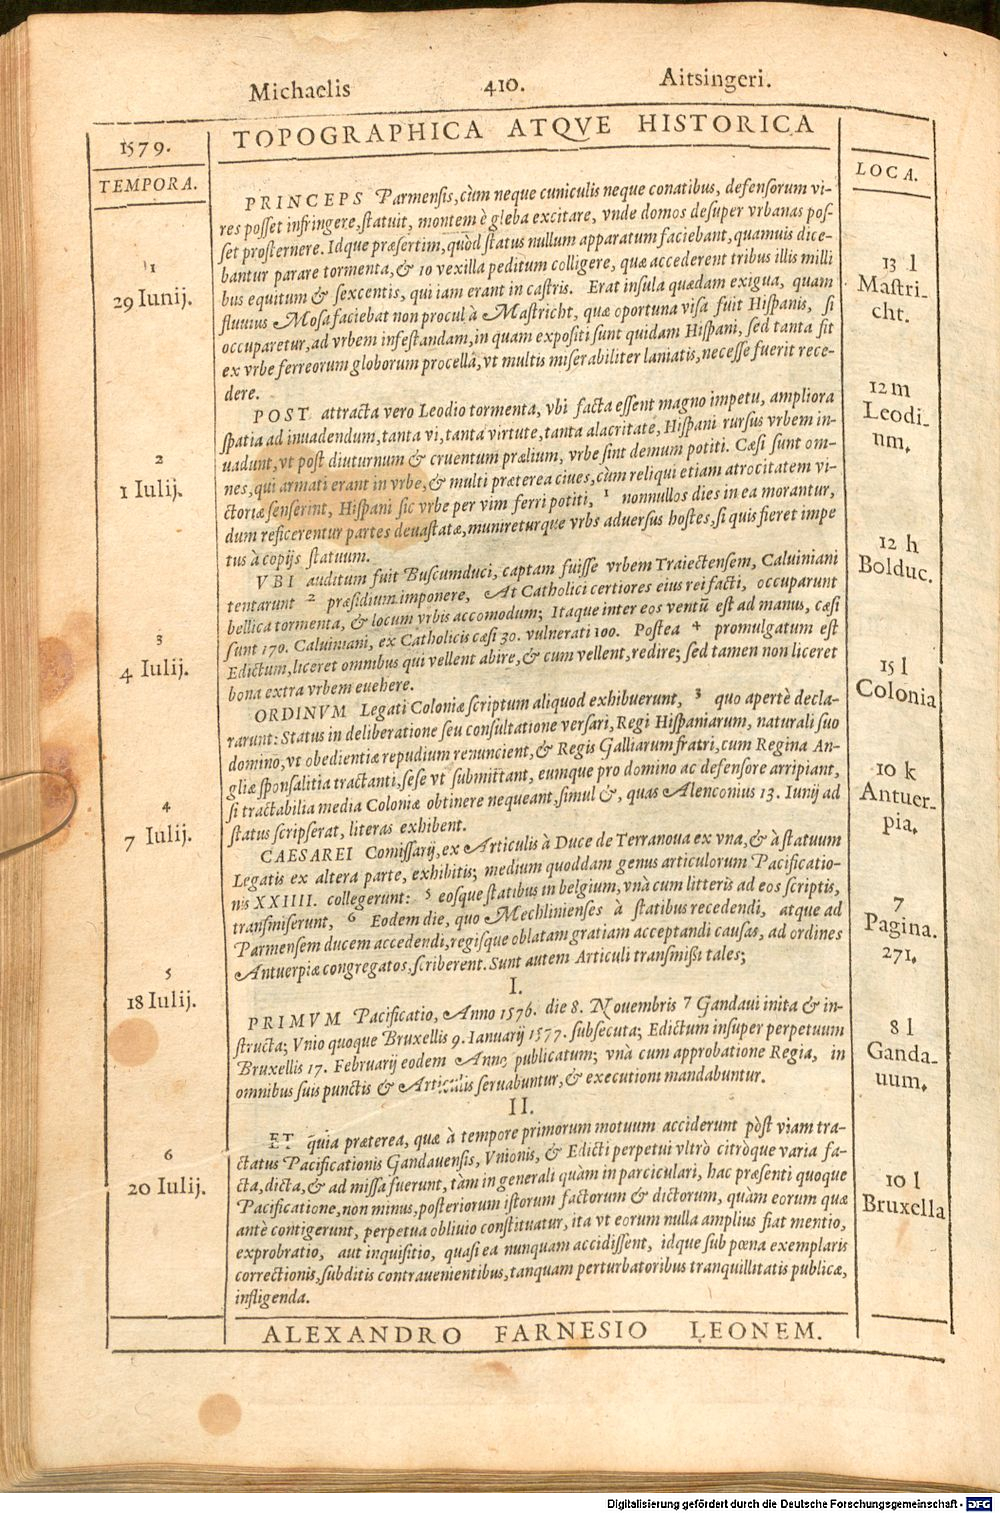 Michaelis 410. Aitsingeri.
1579. TOPOGRAPHICA ATQVE HISTORICA
TEMPORA. LOCA.
PRINCEPS Parmensis, cùm neque cuniculis neque conatibus, defensorum vi-
res posset infringere, statuit, montem è gleba excitare, vnde domos desuper vrbanas pos-
set prosternere. Idque præsertim, quòd status nullum apparatum faciebant, quamuis dice-
bantur parare tormenta, & 10 vexilla peditum colligere, quæ accederent tribus illis milli
bus equitum & sexcentis, qui iam erant in castris. Erat insula quædam exigua, quam
fluuius Mosa faciebat non procul à Mastricht, quæ oportuna visa fuit Hispanis, si
occuparetur, ad vrbem infestandam, in quam expositi sunt quidam Hispani, sed tanta sit
ex vrbe ferreorum globorum procellâ, vt multis miserabiliter laniatis, necesse fuerit rece-
dere.
1
29 Iunij.
13 l
Mastri-
cht.
POST attracta vero Leodio tormenta, vbi facta essent magno impetu, ampliora
spatia ad inuadendum, tanta vi, tanta virtute, tanta alacritate, Hispani rursus vrbem in-
uadunt, vt post diuturnum & cruentum prælium, vrbe sint demum potiti. Cæsi sunt om-
nes, qui armati erant in vrbe, & multi præterea ciues, cùm reliqui etiam atrocitatem vi-
ctoriæ senserint, Hispani sic vrbe per vim ferri potiti, 1 nonnullos dies in ea morantur,
dum reficerentur partes deuastatæ, munireturque vrbs aduersus hostes, si quis fieret impe
tus à copijs statuum.
2
1 Iulij.
12 m
Leodi-
um.
VBI auditum fuit Buscumduci, captam fuisse vrbem Traiectensem, Caluiniani
tentarunt 2 præsidium imponere, At Catholici certiores eius rei facti, occuparunt
bellica tormenta, & locum vrbis accomodum; Itaque inter eos ventū est ad manus, cæsi
sunt 170. Caluiniani, ex Catholicis cæsi 30. vulnerati 100. Postea 4 promulgatum est
Edictum, liceret omnibus qui vellent abire, & cum vellent, redire; sed tamen non liceret
bona extra vrbem euehere.
3
4 Iulij.
12 h
Bolduc.
ORDINVM Legati Coloniæ scriptum aliquod exhibuerunt, 3 quo apertè decla-
rarunt: Status in deliberatione seu consultatione versari, Regi Hispaniarum, naturali suo
domino, vt obedientiæ repudium renuncient, & Regis Galliarum fratri, cum Regina An-
gliæ sponsalitia tractanti, sese vt submittant, eumque pro domino ac defensore arripiant,
si tractabilia media Coloniæ obtinere nequeant, simul &, quas Alenconius 13. Iunij ad
status scripserat, literas exhibent.
4
7 Iulij.
15 l
Colonia
10 k
Antuer-
pia.
CAESAREI Comissarij, ex Articulis à Duce de Terranoua ex vna, & à statuum
Legatis ex altera parte, exhibitis; medium quoddam genus articulorum Pacificatio-
nis XXIIII. collegerunt: 5 eosque statibus in belgium, vnà cum litteris ad eos scriptis,
transmiserunt, 6 Eodem die, quo Mechlinienses à statibus recedendi, atque ad
Parmensem ducem accedendi, regisque oblatam gratiam acceptandi causas, ad ordines
Antuerpiæ congregatos, scriberent. Sunt autem Articuli transmissi tales;
5
18 Iulij.
7
Pagina.
271.
I.
PRIMVM Pacificatio, Anno 1576. die 8. Nouembris 7 Gandaui inita & in-
structa; Vnio quoque Bruxellis 9. Ianuarij 1577. subsecuta; Edictum insuper perpetuum
Bruxellis 17. Februarij eodem Anno publicatum; vnà cum approbatione Regia, in
omnibus suis punctis & Articulis seruabuntur, & executioni mandabuntur.
8 l
Ganda-
uum.
II.
ET quia præterea, quæ à tempore primorum motuum acciderunt pòst viam tra-
ctatus Pacificationis Gandauensis, Vnionis, & Edicti perpetui vltrò citròque varia fa-
cta, dicta, & ad missa fuerunt, tàm in generali quàm in parciculari, hac præsenti quoque
Pacificatione, non minus, posteriorum istorum factorum & dictorum, quàm eorum quæ
antè contigerunt, perpetua obliuio constituatur, ita vt eorum nulla amplius fiat mentio,
exprobratio, aut inquisitio, quasi ea nunquam accidissent, idque sub pœna exemplaris
correctionis, subditis contrauenientibus, tanquam perturbatoribus tranquillitatis publicæ,
infligenda.
6
20 Iulij.
10 l
Bruxella
ALEXANDRO FARNESIO LEONEM.
Digitalisierung gefördert durch die Deutsche Forschungsgemeinschaft - DFG